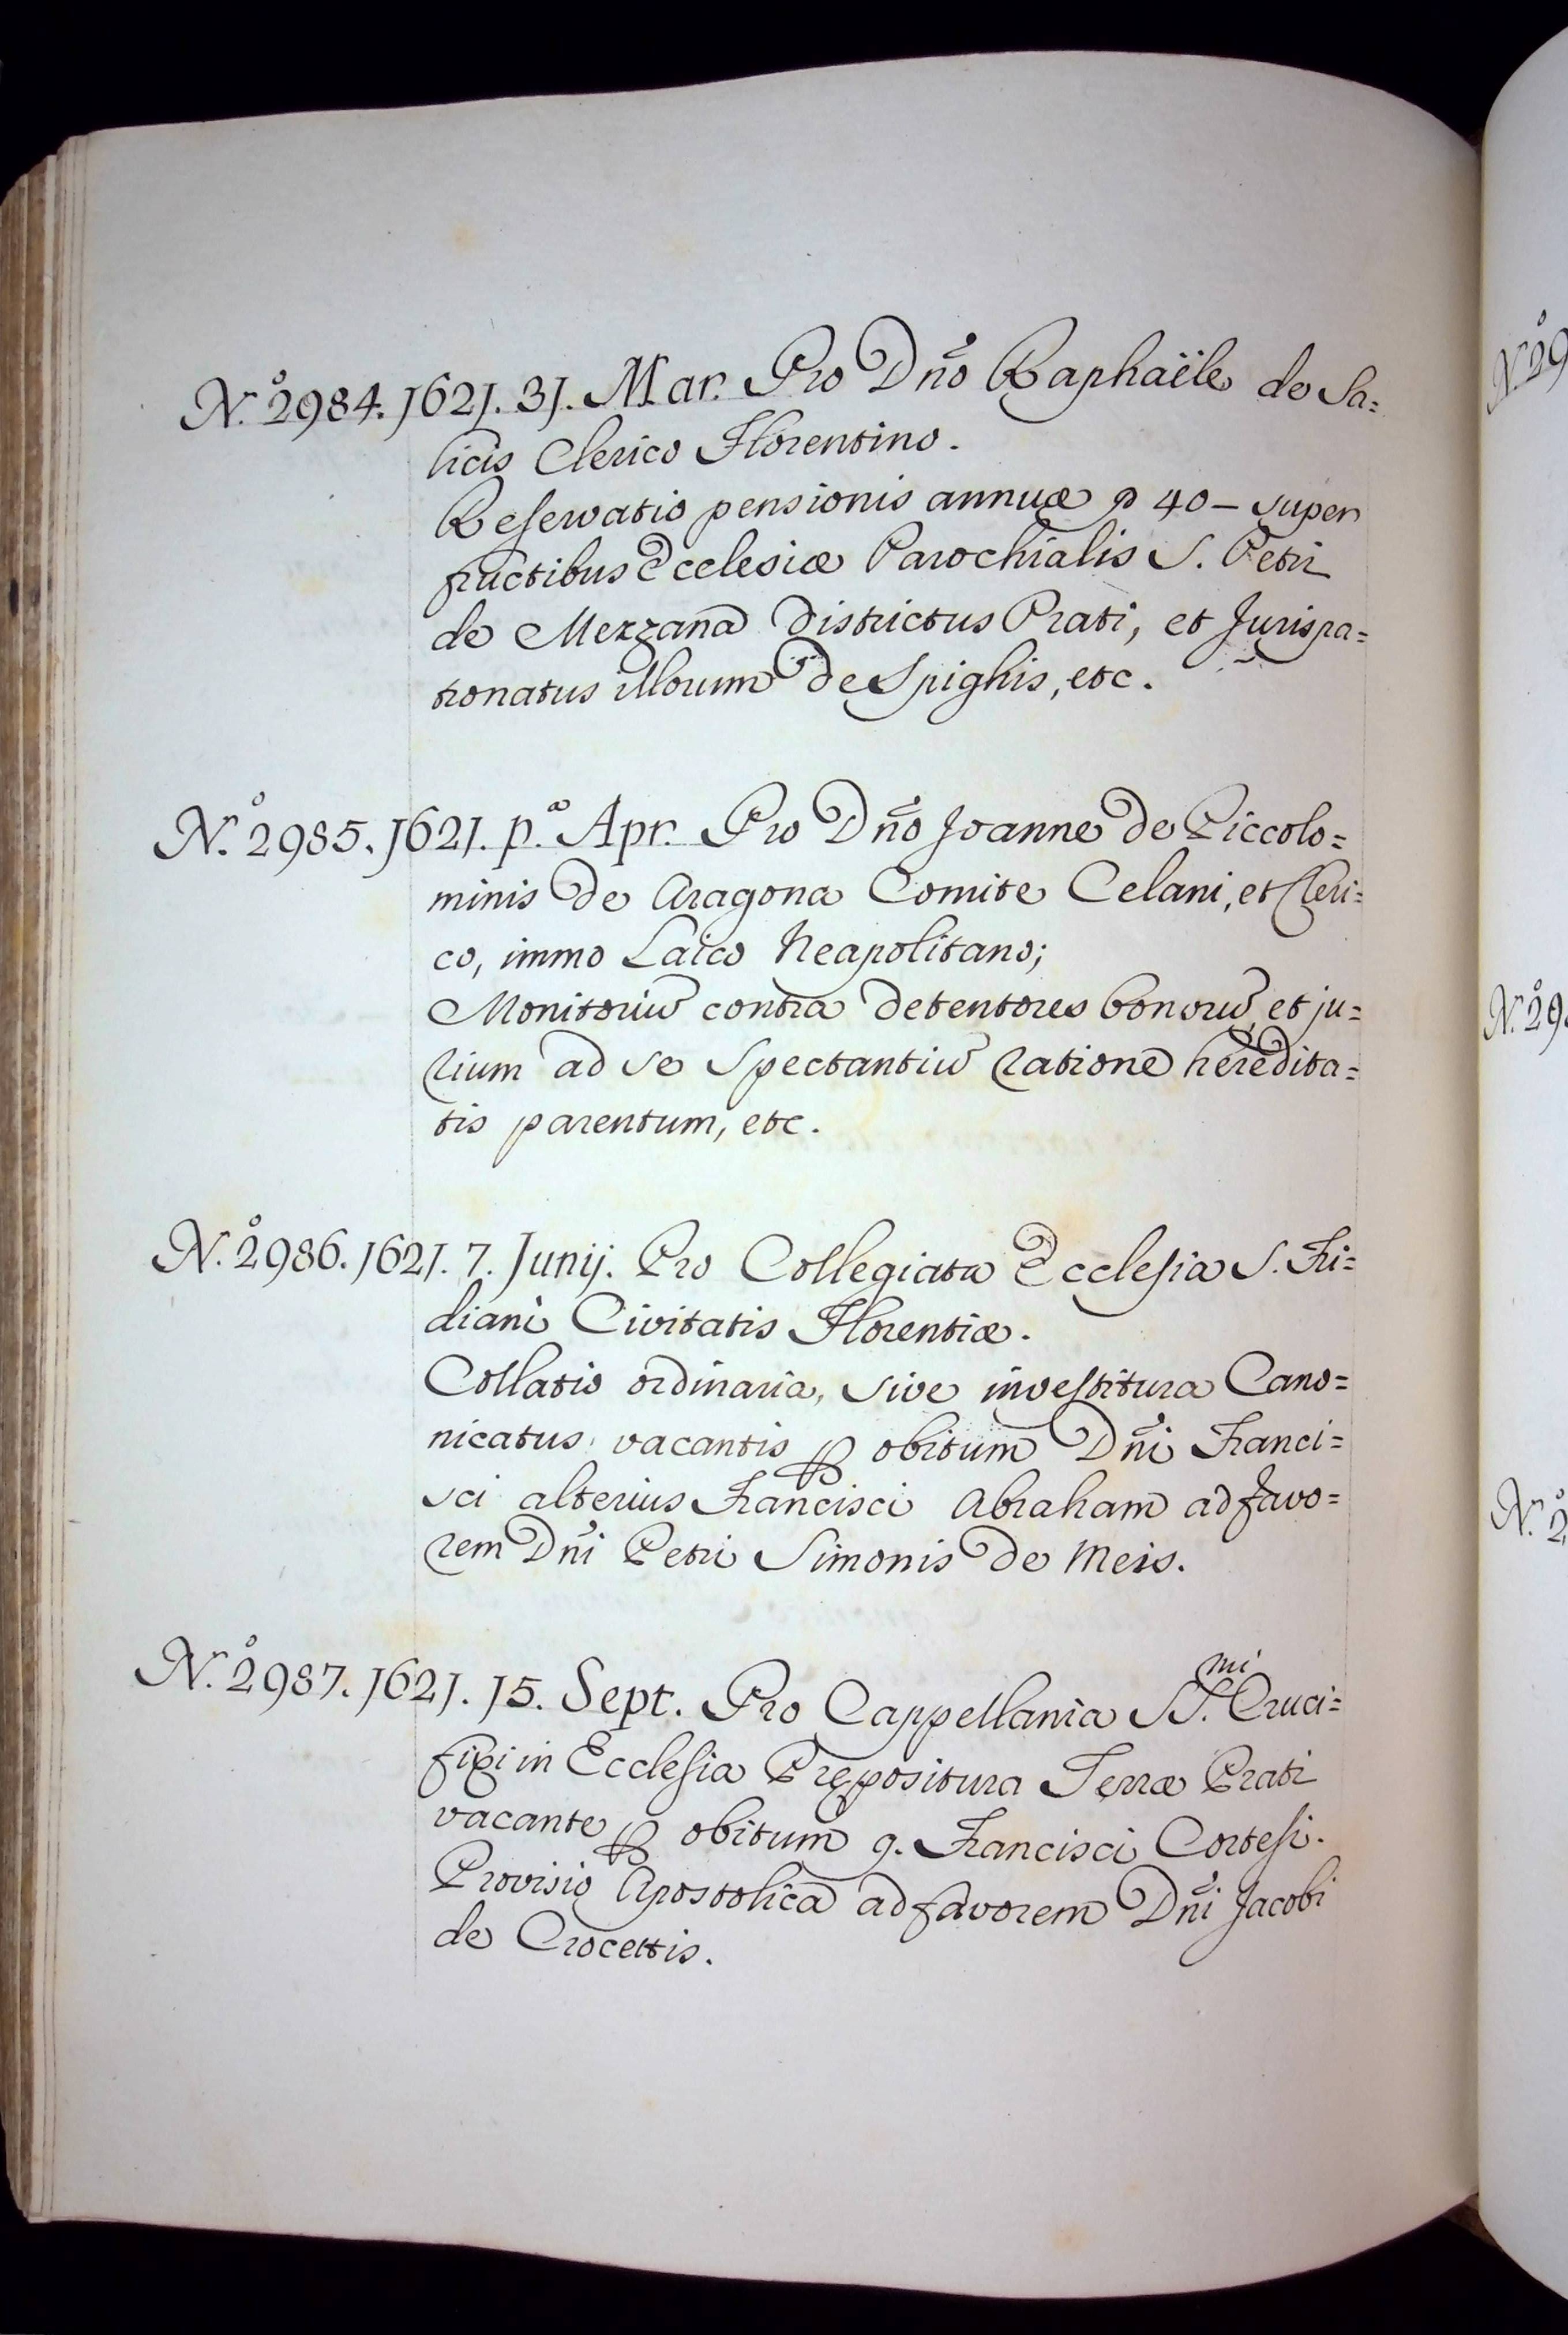 N.º 2984. 1621. 31. Mar. Pro Dño Raphaële de Sa=
licis Clerico Florentino.
Reservatio pensionis annuæ 40 – super
fructibus Ecclesiæ Parochialis S. Petri
de Mezzana Districtus Prati, et Jurispa=
tronatus illorum de Spighis, etc.
N.º 2985. 1621. p.ª Apr. Pro Dño Joanne de Piccolo=
minis de Aragona Comite Celani, et Cleri=
co, immo Laico Neapolitano;
Monitoriũ contra detentores bonorũ, et ju=
rium ad se spectantiũ ratione heredita=
tis parentum, etc.
N.º 2986. 1621. 7. Junij. Pro Collegiata Ecclesia S. Fri=
diani Civitatis Florentiæ.
Collatio ordinaria, sive investitura Cano=
nicatus vacantis ꝑ obitum Dñi Franci=
sci alterius Francisci Abraham ad favo=
rem Dñi Petri Simonis de Meis.
N.º 2987. 1621. 15. Sept. Pro Cappellania SS.mi Cruci=
fixi in Ecclesia Prępositura Terræ Prati
vacante ꝑ obitum q. Francisci Cortesi.
Provisio Apostolica ad favorem Dñi Jacobi
de Crocettis.
N.º 29
N.º 29
N.º 2